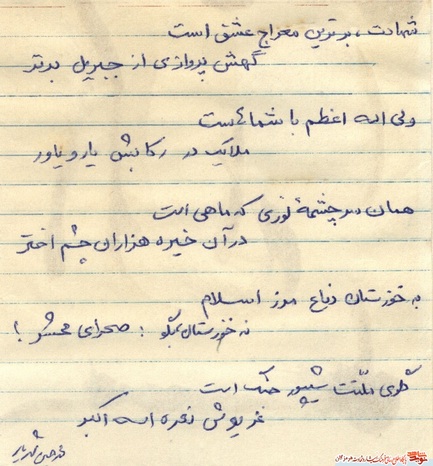 شهادت، برترین معراج عشق است
گهش پروازی از جبریل برتر
ولی الله اعظم با شماهاست
ملائیک در رکابش یار و یاور
همان سرچشمهٔ نوری که ماهی است
در آن خیره هزاران چشم اختر
به خوزستان دفاع مرز اسلام
نه خوزستان بگو : صحرای محشر !
گلوی ملّت شیپور جنگ است
غریوش نعره الله اکبر
محمد حسین شهریار